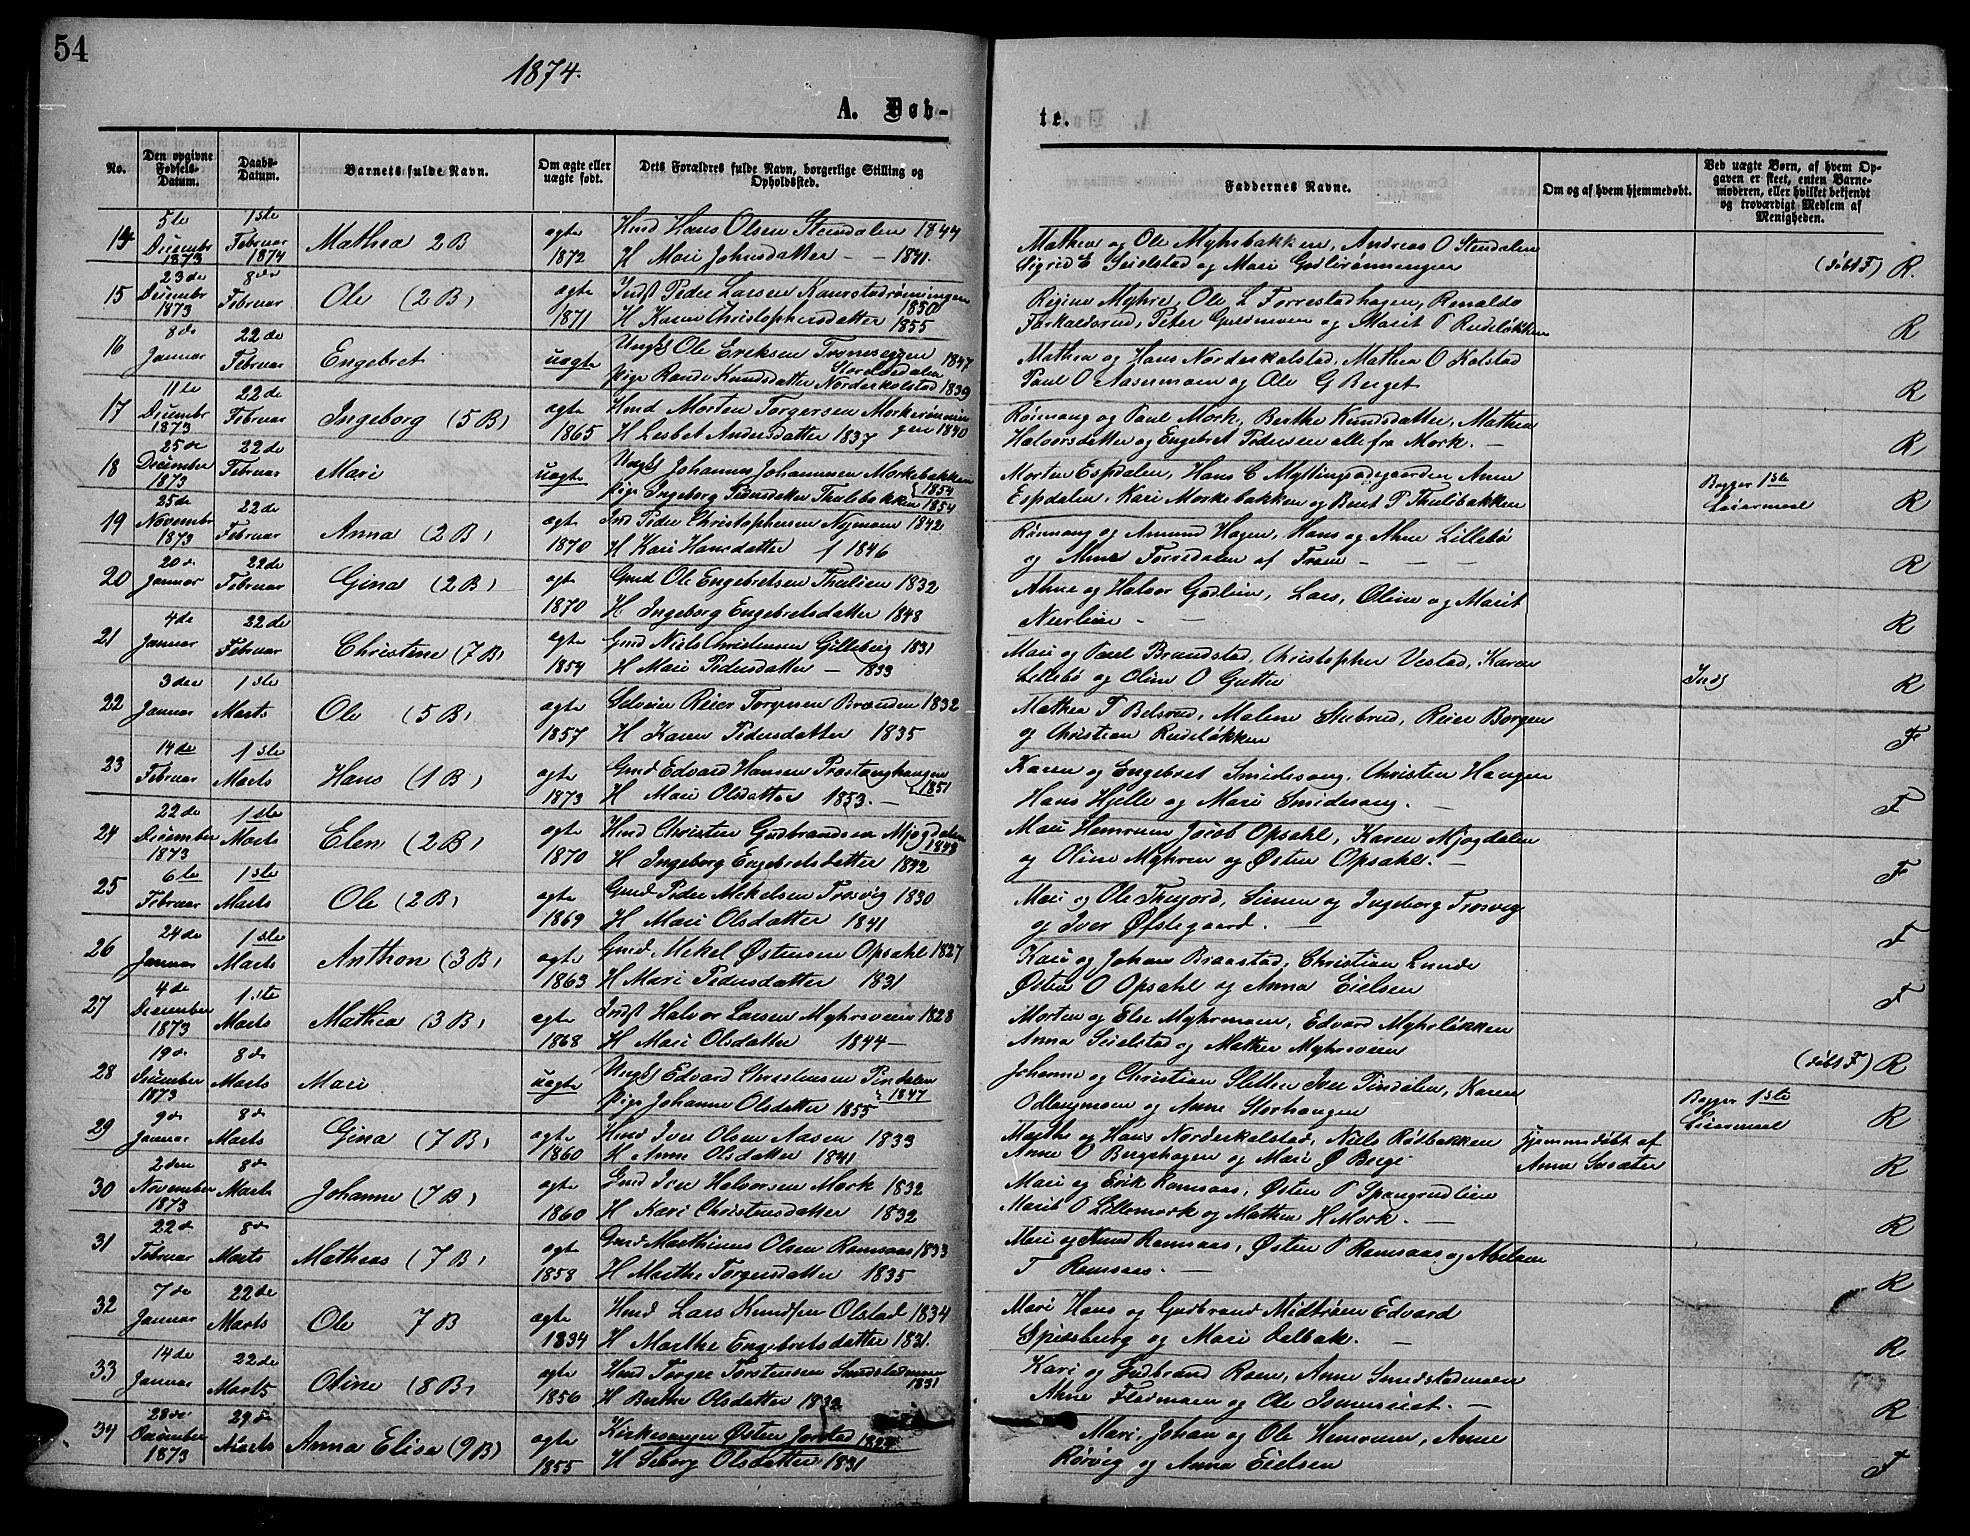 54
1874.
A. Døb-
te.
No.
Den opgivne Fødsels-Datum.
Daabs-Datum.
Barnets fulde Navn.
Om ægte eller uægte født.
Dets Forældres fulde Navn, borgerlige Stilling og Opholdssted.
Faddernes Navne.
Om og af hvem hjemmedøbt.
Ved uægte Børn, af hvem Opgaven er skeet, enten Barnemoderen, eller hvilket bekjendt og troværdigt Medlem af Menigheden.
14 5te Decembr 1873 1ste Februar 1874 Mathea 2B ægte 1872 Hmd Hans Olsen Steindalen 1844
H Mari Johnsdatter — — 1841.
Mathea og Ole Myhrbakken, Andreas O Stendalen
Sigrid E Seielstad og Mari Godlirønningen (døbt F) R.
15 23de Decembr 1873 8de Februar Ole (2B) ægte 1871 Indst Peder Larsen 1850
H Karen Christophersdatter 1855
Regine Myhre, Ole L Forrestadhagen, Renaldo
Peter Guldmoen og Marit P Rudsløkken R
16 8de Januar 22de Februar Engebret uægte Ungk Ole Eriksen Tronseggen 1847
Pige Rande Knudsdatter Norderkolstad 1839
Mathea og Hans Norderkolstad, Mathea O Kolstad
Paul O Aasermoen og Ole G Berget R
17 11te Decembr 1873 22de Februar Ingeborg (5B) ægte 1865 Hmd Morten Torgersen Morkerønningen 1840
H Lesbet Andersdatter 1837
Rønnoug og Paul Mork, Berthe Knudsdatter, Mathea
Halvorsdatter og Engebret Pedersen alle fra Mork. — R
18 25de December 1873 22de Februar Mari uægte Ungk Johannes Johannesen Morkebakken 1854
Pige Ingeborg Pedersdatter Thulibakken 1854
Morten Espdalen, Hans C Myllingsødegaarden Anne
Espdalen, Kari Morkebakken og Bent P Thulibakken
Begges 1ste Leiermaal R
19 25de Novembr 1873 22de Februar Anna (2B) ægte 1870 Ind Peder Christophersen Nymoen 1842
H Kari Hansdatter 1846
Rønnoug og Amund Hagen, Hans og Ahne Lillebø
og Ahne Forsedalen af Tron — — — R
20 20de Januar 22de Februar Gina (2B) ægte 1870 Gmd Ole Engebretsen Thulien 1832
H Ingeborg Engebretsdatter 1848
Ahne og Halvor Godlien, Lars, Oline og Marit
Neerlien — — R
21 4de Januar 22de Februar Christine (7B) ægte 1854 Gmd Niels Christensen Gilleberg 1831
H Mari Pedersdatter — 1833
Mari og Paul Brandstad, Christopher Vestad, Karen
Lillebø og Oline O Gutter R
22 3die Januar 1ste Marts Ole (5B) ægte 1857 Selveier Reier Torgersen Brænden 1832
H Karen Pedersdatter 1835
Mathea T Belsrud, Malene Stubrud, Reier Borgen
og Christian Rudsløkken F
23 14de Februar 1ste Marts Hans (1B) ægte 1873 Gmd Edvard Hansen Prestanghagen 1851
H Mari Olsdatter 1853. —
Karen og Engebret Smidesang, Christen Haugen
Hans Hjelle og Mari Smidesang. — F
24 22de December 1873 1ste Marts Elen (2B) ægte 1870 Hmd Christen Gudbrandsen Mjogdalen 1843
H Ingeborg Engebretsdatter 1832
Mari Hemruen Jacob Opsahl, Karen Mjogdalen
og Oline Myhren og Østen Opsahl. — F
25 6te Februar 1ste Marts Ole (2B) ægte 1869 Gmd Peder Mekelsen Trosvig 1830
H Mari Olsdatter 1841
Mari og Ole Thujord, Simen og Ingeborg Trosvig
og Iver Øfstegaard. — F
26 24de Januar 1ste Marts Anthon (3B) ægte 1863 Gmd Mekel Østensen Opsahl 1827
H Mari Pedersdatter 1831
Kari og Johan Braastad, Christian Lunde
Østen O Opsahl og Anna Eielsen F
27 4de December 1873 1ste Marts Mathea (3B) ægte 1868 Indst Halvor Larsen Myhrsveen 1828
H Mari Olsdatter 1844 —
Morten og Else Myhrmoen, Edvard Myhrløkken
Anna Seielstad og Mathea Myhrsveen (døbt F) R
28 19de December 1873 8de Marts Mari uægte Ungk Edvard Christensen Pindalen 1847
Pige Johanne Olsdatter 1855
Johanne og Christian Sletten Iver Pindalen, Karen
Odlaugmoen og Anne Storhaugen
Begges 1ste Leiermaal R
29 9de Januar 8de Marts Gina (7B) ægte 1860 Hmd Iver Olsen Aasen 1833
H Anne Olsdatter 1841
Marthe og Hans Norderkolstad, Niels Røtbakken
Anne O Bergshagen og Mari Ø Berge
hjemmedøbt af Anne R
30 2den November 1873 8de Marts Johanne (7B) ægte 1860 Gmd Iver Halvorsen Mork 1832
H Kari Christensdatter 1832
Mari og Erik Ramsaas, Østen P Spangrudlien
Marit O Lillemork og Mathea H Mork. — R
31 22de Februar 8de Marts Mathias (7B) ægte 1858 Gmd Marthinus Olsen Ramsaas 1833
H Marthe Torgersdatter 1835
Mari og Knud Ramsaas, Østen P Ramsaas og Abelone
T Ramsaas. — R
32 7de Januar 22de Marts Ole 7B ægte 1834 Hmd Lars Knudsen Olstad 1834
H Marthe Engebretsdatter 1831.
Mari Hans og Gudbrand Midtrøen Edvard
Spidsberg og Mari Dalbak. — R
33 14de Januar 22de Marts Oline (8B) ægte 1856 Hmd Torger Torstensen Smedstadmoen 1831
H Berthe Olsdatter 1832
Kari og Gudbrand Roen, Anne Smedstadmoen
Ahne Fleismoen og Ole R
34 28de December 1873 29de Marts Anna Elise (9B) ægte 1855 Kirkesanger Østen Jorstad
H Seborg Olsdatter 1831
Mari, Johan og Ole Hemruen, Anne
Rørvig og Anna Eielsen F